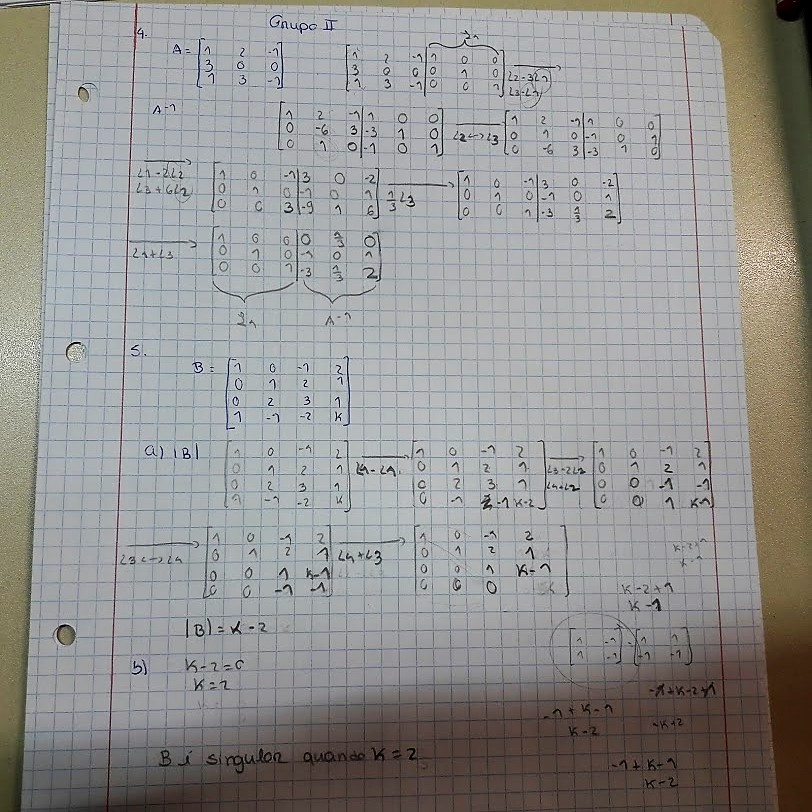 Grupo II
4.
A = [1 2 -1; 3 0 0; 1 3 -1] [1 2 -1 | 1 0 0; 3 0 0 | 0 1 0; 1 3 -1 | 0 0 1] L2-3L1 L3-L1
A-1 [1 2 -1 | 1 0 0; 0 -6 3 | -3 1 0; 0 1 0 | -1 0 1] L2<->L3 [1 2 -1 | 1 0 0; 0 1 0 | -1 0 1; 0 -6 3 | -3 1 0]
L1-2L2 L3+6L2 [1 0 -1 | 3 0 -2; 0 1 0 | -1 0 1; 0 0 3 | -9 1 6] 1/3 L3 [1 0 -1 | 3 0 -2; 0 1 0 | -1 0 1; 0 0 1 | -3 1/3 2]
L1+L3 [1 0 0 | 0 1/3 0; 0 1 0 | -1 0 1; 0 0 1 | -3 1/3 2]
A-1
5.
B = [1 0 -1 2; 0 1 2 1; 0 2 3 1; 1 -1 -2 K]
a) |B| [1 0 -1 2; 0 1 2 1; 0 2 3 1; 1 -1 -2 K] L4-L1 [1 0 -1 2; 0 1 2 1; 0 2 3 1; 0 -1 -1 K-2] L3-2L2 L4+L2 [1 0 -1 2; 0 1 2 1; 0 0 -1 -1; 0 0 1 K-1]
L3<->L4 [1 0 -1 2; 0 1 2 1; 0 0 1 K-1; 0 0 -1 -1] L4+L3 [1 0 -1 2; 0 1 2 1; 0 0 1 K-1; 0 0 0]
K-2+1
K-1
|B| = K-2
b) K-2=0
K=2
-1+K-1
K-2
B é singular quando K = 2
-1+K-1
K-2